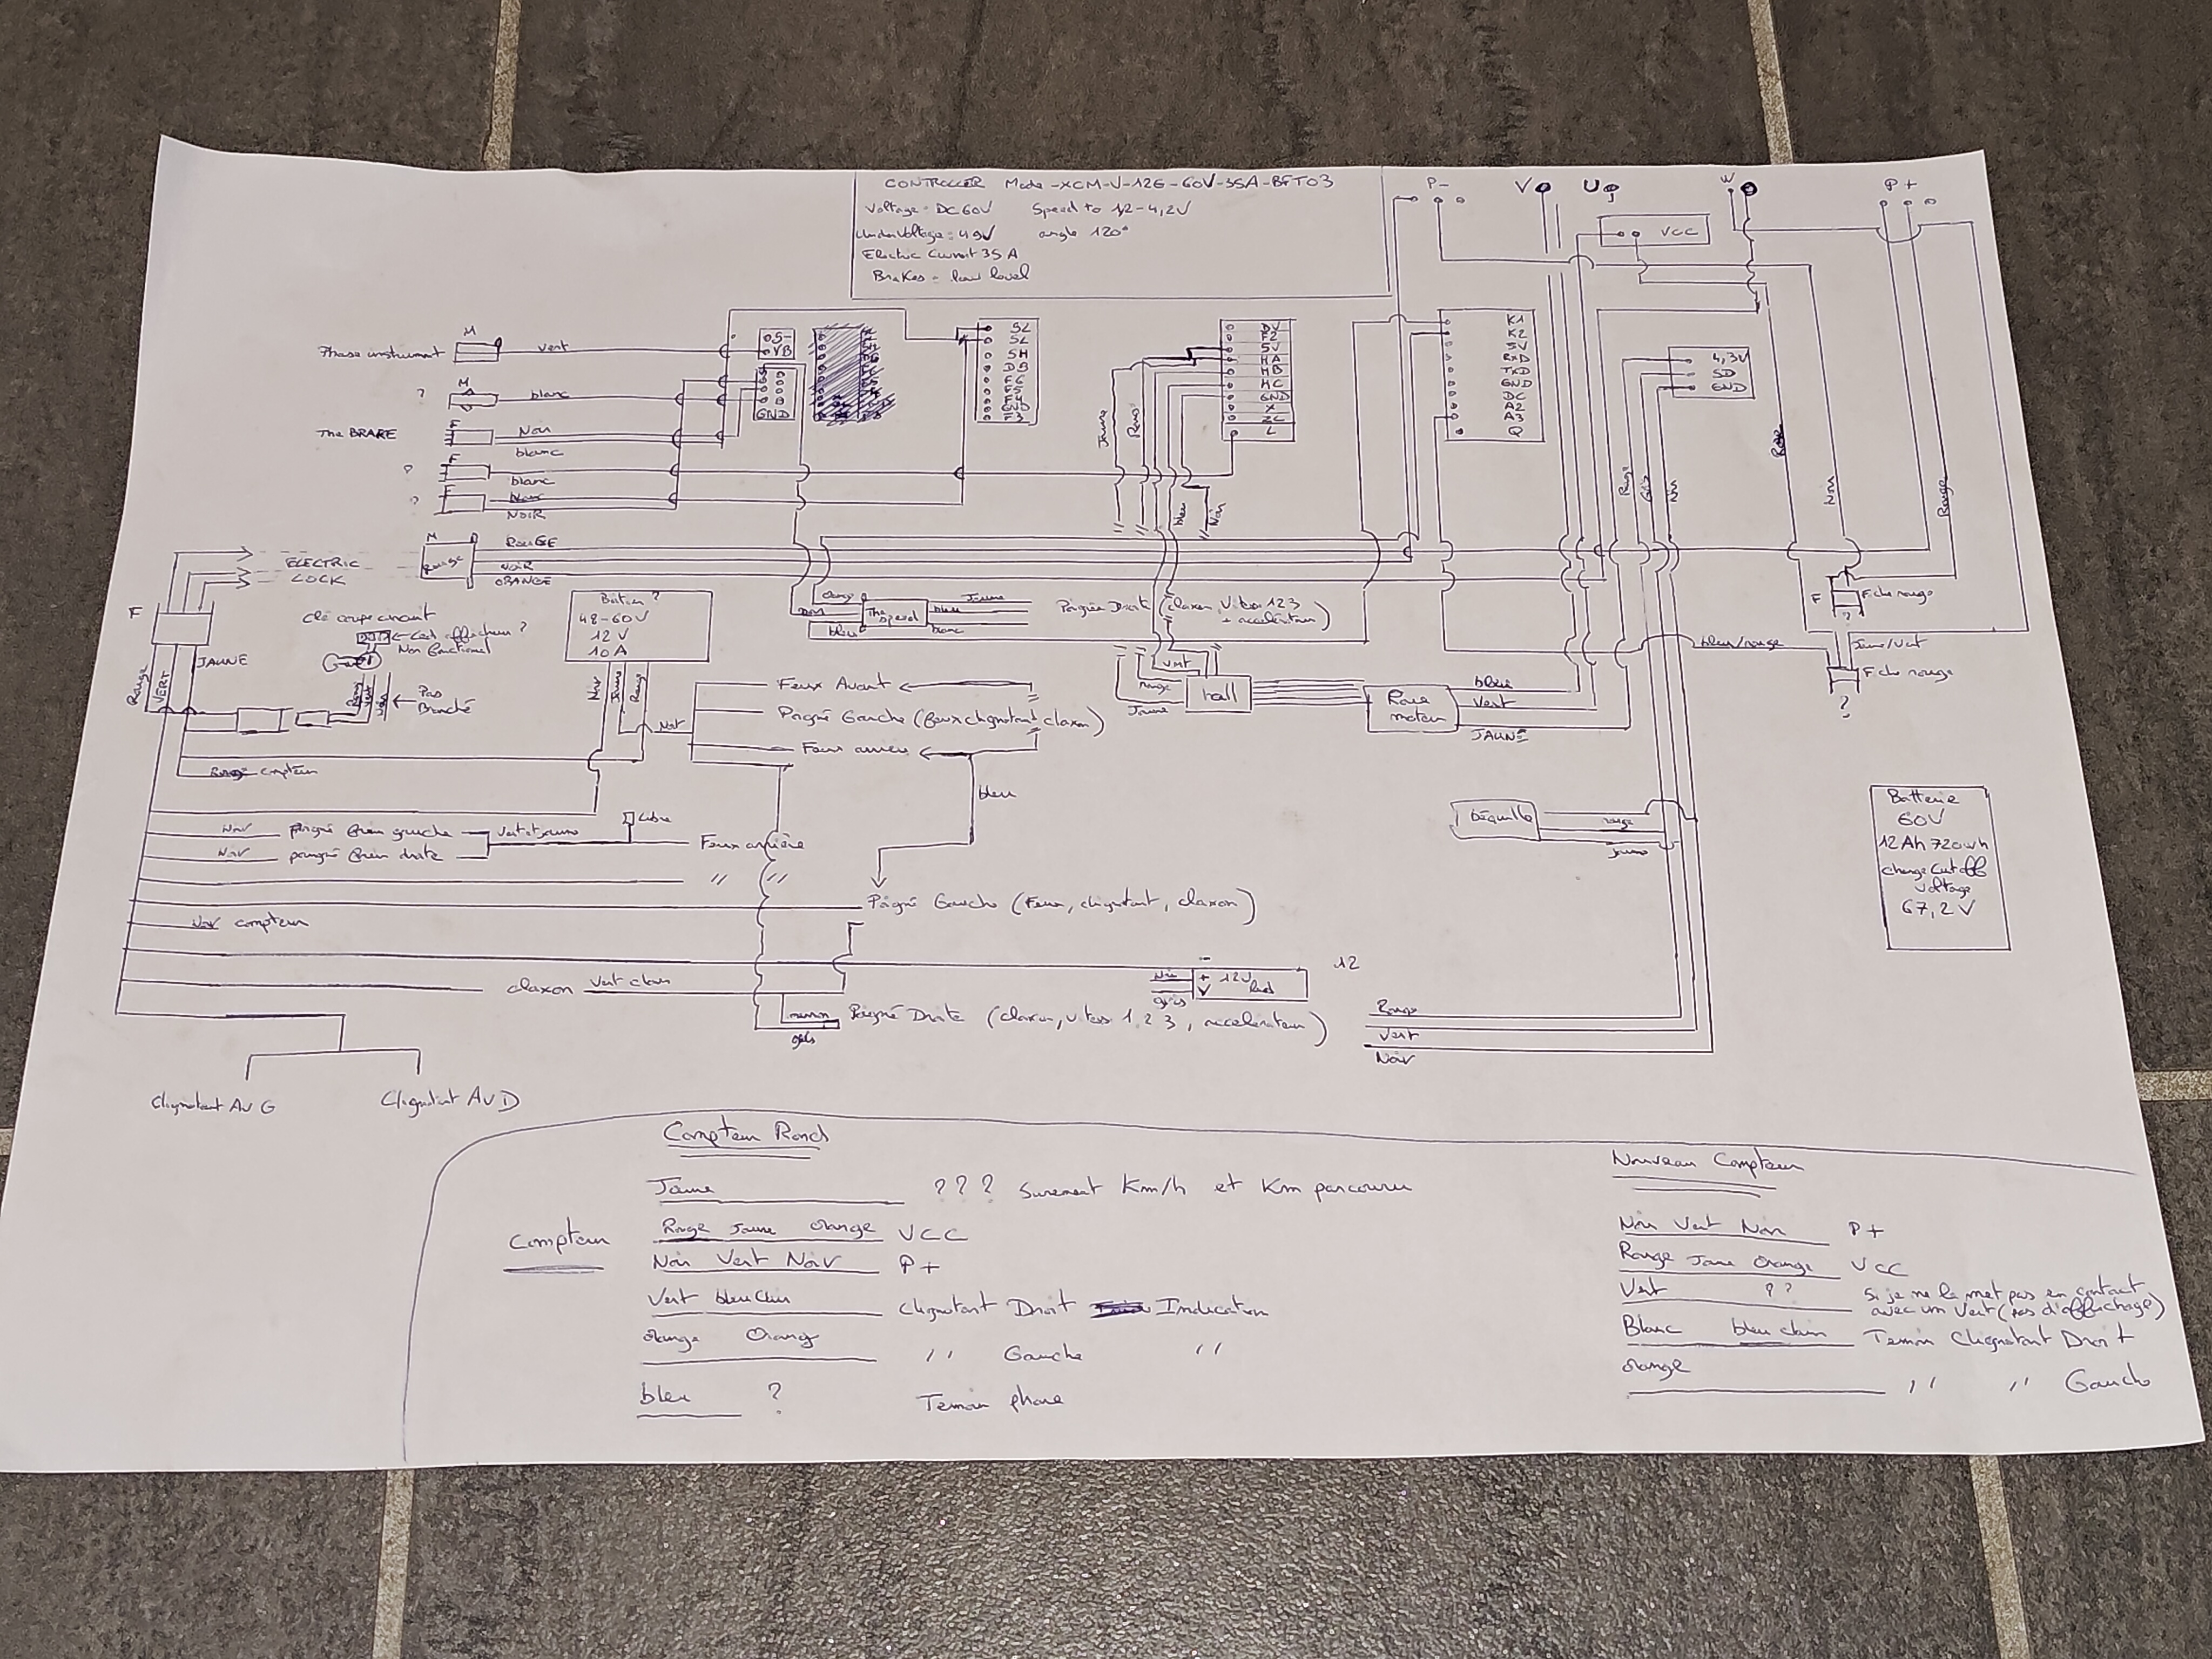 CONTROLLER Mode-XCM-V-12G-60V-35A-BFT03
Voltage = DC 60V Speed to 1/2-4,2V
UnderVoltage = 49V angle 120°
Electric Current 35 A
Brakes = low level
P-
V
U
W
P+
VCC
Phase instrument
M
vert
S-
VB
GND
SL
SL
SH
DB
F6
DV
F2
5V
HA
HB
HC
GND
X
ZC
L
K1
K2
5V
RxD
TxD
GND
DC
A2
A3
Q
4,3V
SD
GND
?
M
blanc
The BRAKE
F
Noir
blanc
?
F
blanc
?
F
Noir
NOIR
Jaune
Rouge
bleu
Noir
Rouge
Gris
Noir
Noir
Rouge
ELECTRIC
LOCK
M
Rouge
ROUGE
NOIR
ORANGE
F
Rouge
VERT
JAUNE
Clé coupe courant
Led afficheur ?
Non fonctionnel
Pas
Branché
Boitier ?
48-60V
12 V
10 A
Noir
Jaune
Rouge
Noir
orange
Noir
bleu
The
Speed
Jaune
bleu
blanc
Poignée Droite (claxon Vitesse 123
+ accélérateur)
F
Fiche rouge
?
bleu/rouge
Jaune/Vert
Fiche rouge
?
vert
rouge
Jaune
hall
Roue
moteur
bleu
Vert
JAUNE
Feux Avant
Poigné Gauche (feux clignotant claxon)
Feux arrière
bleu
Rouge compteur
Noir poigné frein gauche
Noir poigné frein droite
vert et jaune
Libre
Feux arrière
// //
Poigné Gauche (Feux, clignotant, claxon)
Noir compteur
claxon Vert clair
Noir
gris
-
+
12V
12
marron
gris
Poigné Droite (claxon, vitess 1,2,3, accelerateur)
Béquille
rouge
jaune
Rouge
Vert
Noir
Batterie
60V
12Ah 720wh
charge cut off
voltage
67,2 V
Clignotant Av G
Clignotant Av D
Compteur Rond
Compteur
Jaune ??? Surement Km/h et Km parcouru
Rouge Jaune Orange VCC
Noir Vert Noir P+
Vert bleu clair Clignotant Droit Indication
orange Orang // Gauche //
bleu ? Temoin phare
Nouveau Compteur
Noir Vert Noir P+
Rouge Jaune Orange VCC
Vert ?? Si je ne le met pas en contact
avec un vert (pas d'affichage)
Blanc bleu clair Temoin Clignotant Droit
orange // // Gauche